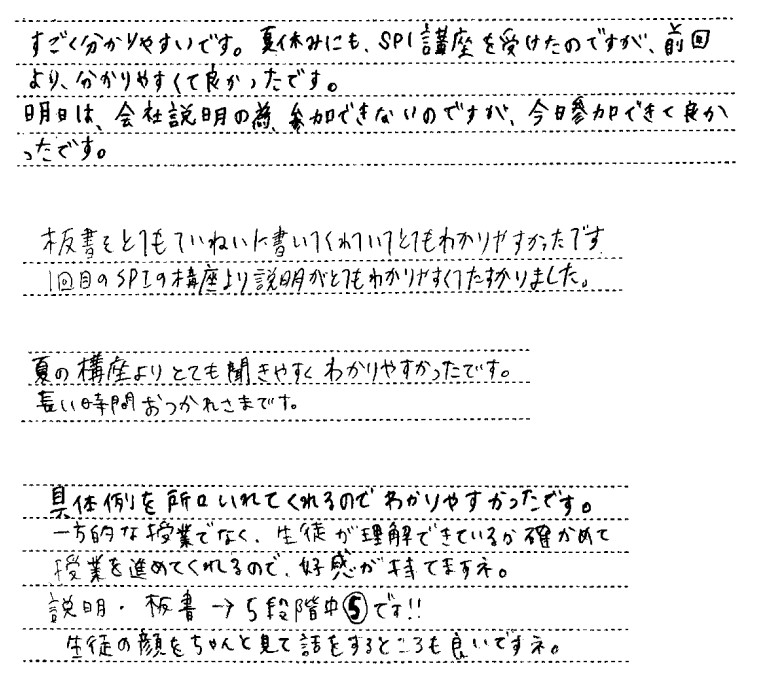 すごく分かりやすいです。夏休みにも、SPI講座を受けたのですが、前回
より、分かりやすくて良かったです。
明日は、会社説明の為、参加できないのですが、今日参加できて良か
ったです。
板書をとてもていねいに書いてくれていてとてもわかりやすかったです
1回目のSPIの構座より説明がとてもわかりやすくてたすかりました。
夏の構座よりとても聞きやすくわかりやすかったです。
長い時間おつかれさまです。
具体例を所々いれてくれるのでわかりやすかったです。
一方的な授業でなく、生徒が理解できているか確かめて
授業を進めてくれるので、好感が持てますネ。
説明・板書→5段階中⑤です!!
生徒の顔をちゃんと見て話をするところも良いですネ。